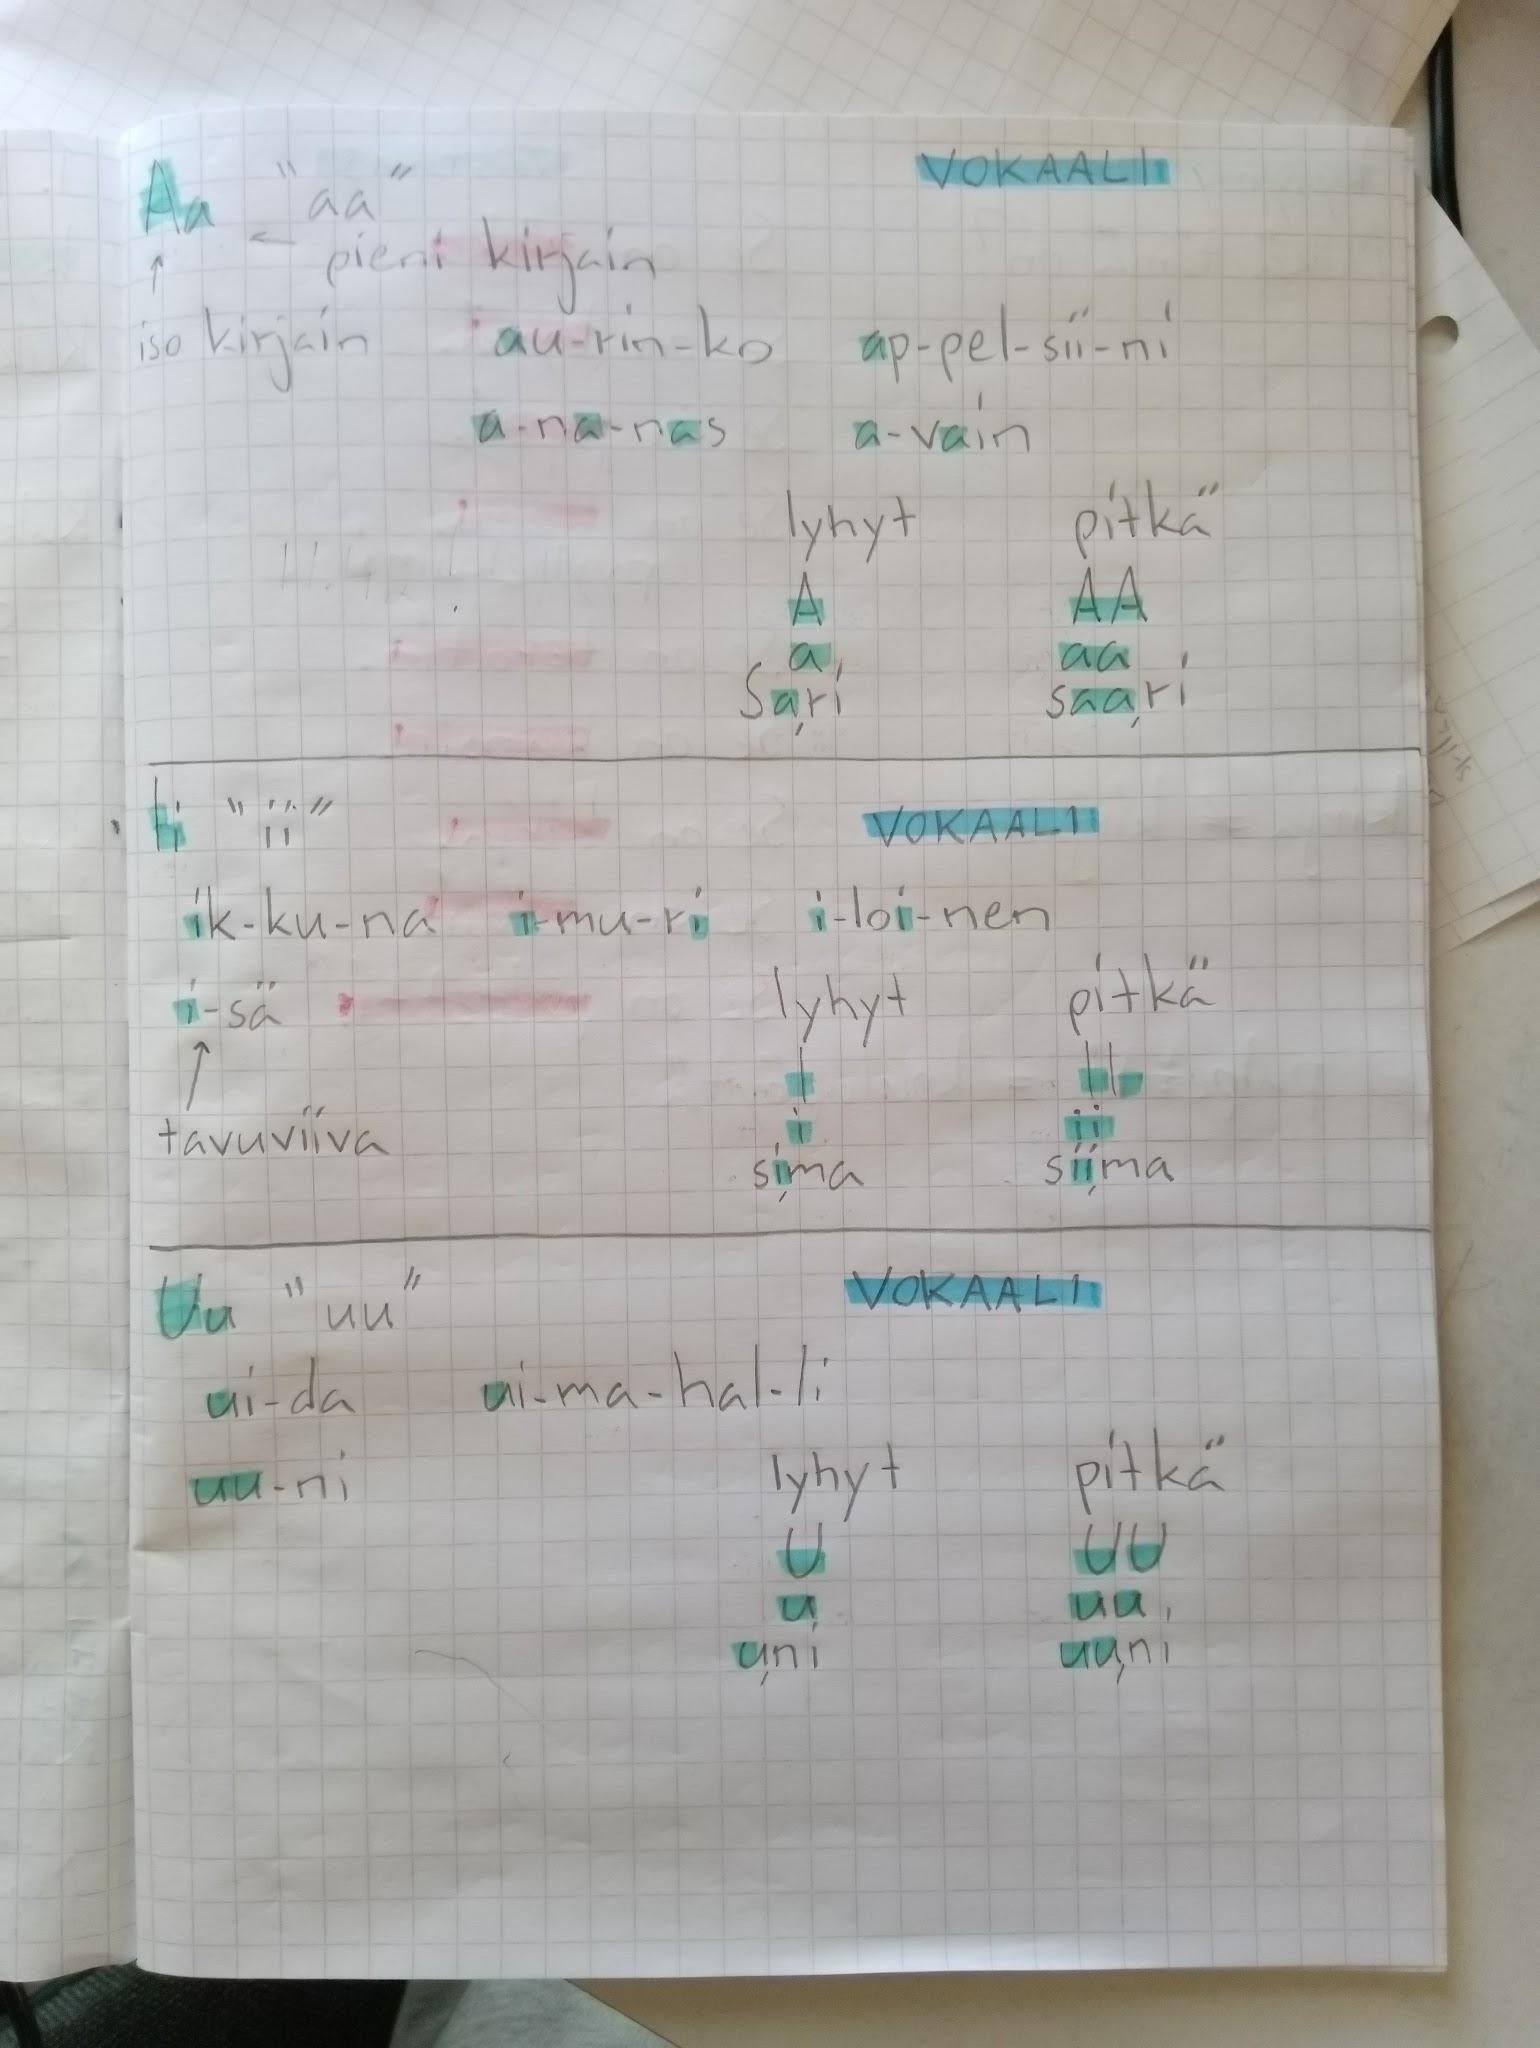 Aa "aa" VOKAALI
← pieni kirjain
↑
iso kirjain au-rin-ko ap-pel-sii-ni
a-na-nas a-vain
lyhyt pitkä
A AA
a aa
Sa,ri saa,ri
Ii "ii" VOKAALI
ik-ku-na i-mu-ri i-loi-nen
i-sä lyhyt pitkä
↑ I II
tavuviiva i ii
si,ma sii,ma
Uu "uu" VOKAALI
ui-da ui-ma-hal-li
uu-ni lyhyt pitkä
U UU
u uu
u,ni uu,ni